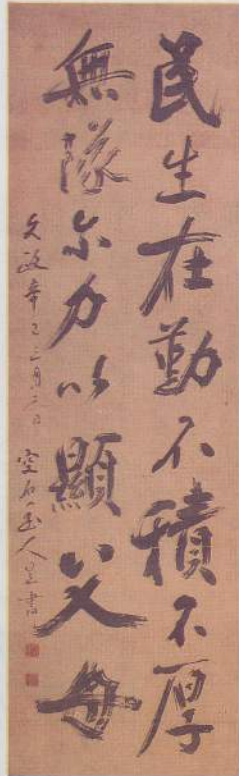 民生在勤不積不厚
無隊尓力以顯父母
文政辛巳三月二日 空石
人星書